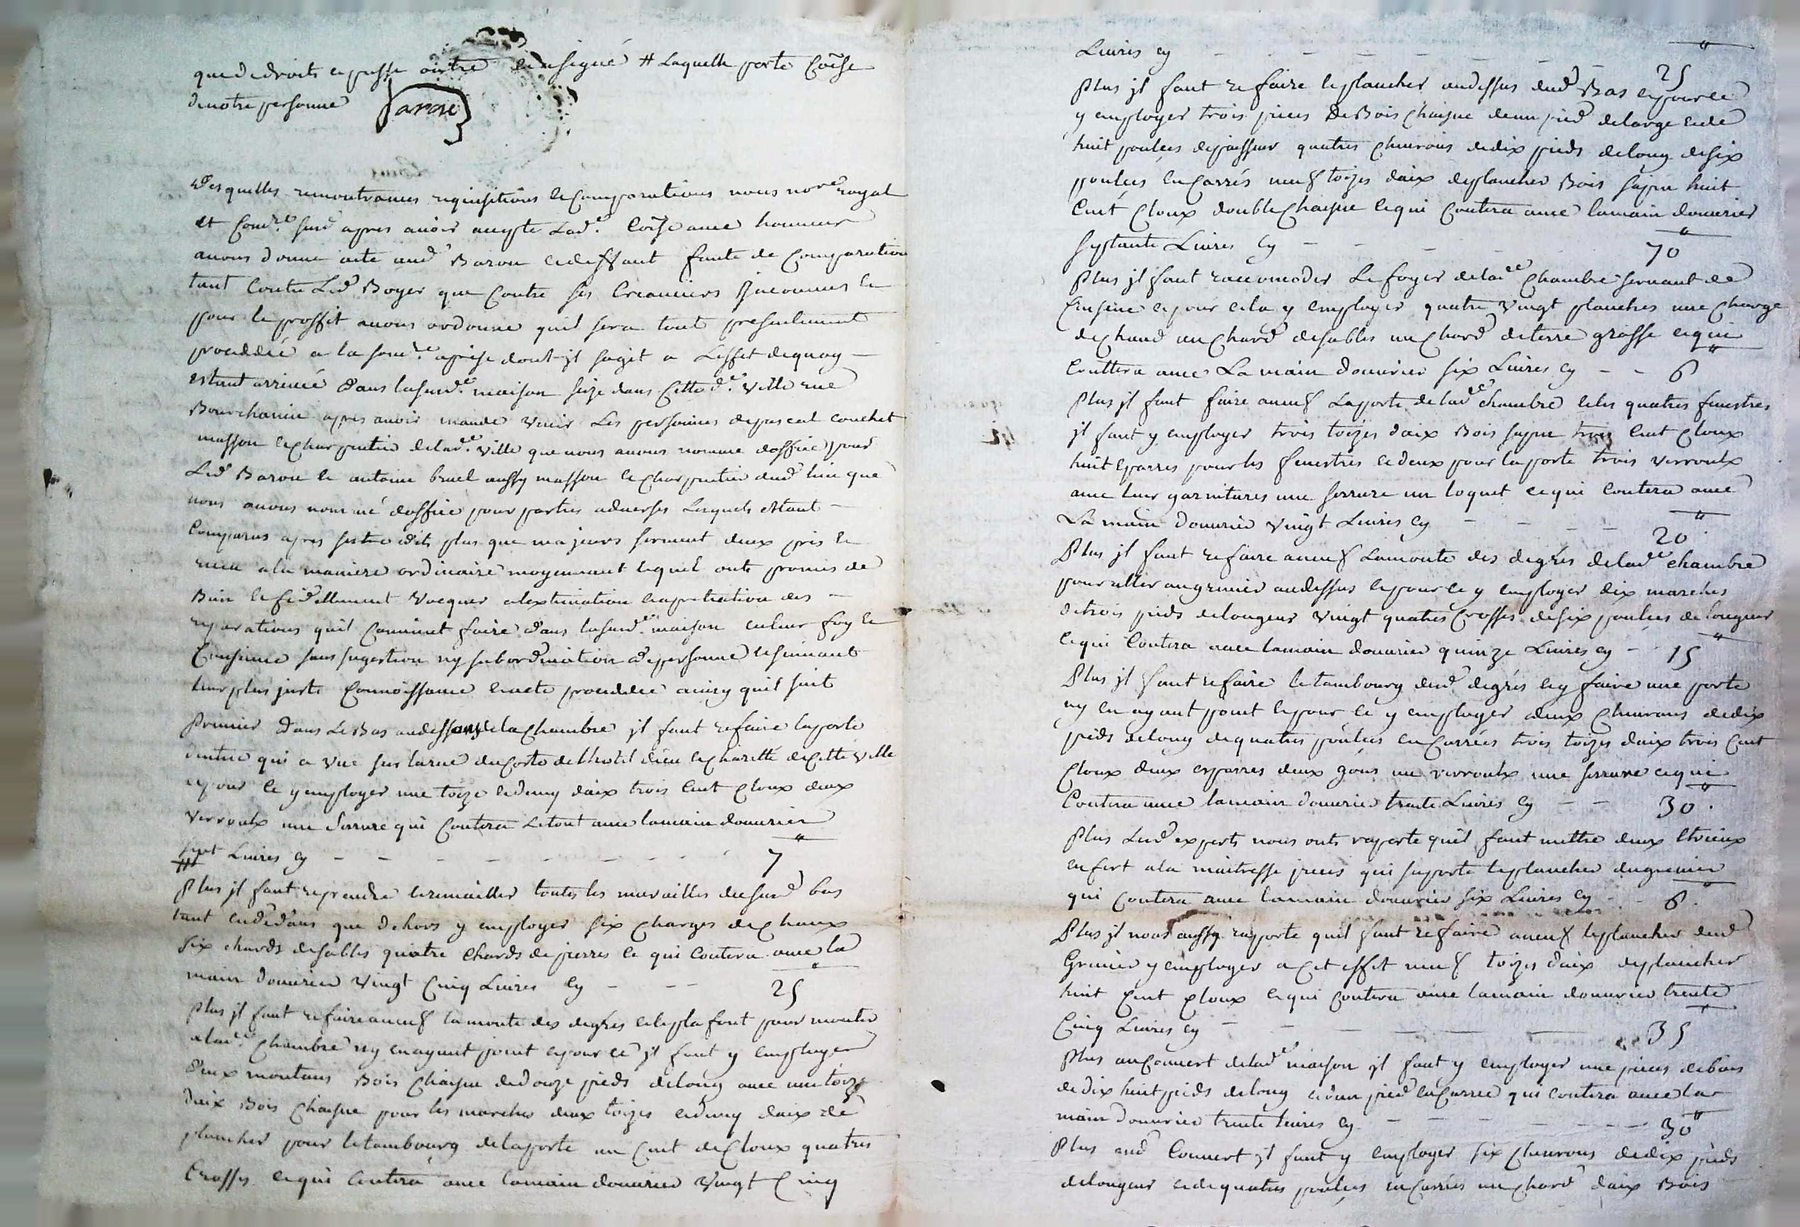 que de droits e passe outre et a signé # Laquelle porte Coise
de notre personne Baron
Desquelles remontrances requisitions et Comparutions nous nore royal
et Comre. susd apres avoir accepte Lade. Coise avec honneur
avons donne acte aud Baron et deffaut faute de Comparution
tant Contre Led Boyer que Contre ses Creanciers et
pour le proffit avons ordonne quil sera tout presentement
procédé a la somre. aprise dont jl sagit a Leffet dequoy
estant arrivé dans lasusde. maison size dans Cette de. ville rue
apres avoir mande venir Les personnes de pascal couchet
masson et charpentier de lade. ville que nous avons nomme doffice pour
Led Baron et antoine bruel aussy masson et charpentier dud lieu que
nous avons nommé doffice pour parties adverses Lesquels estant
Comparus apres sestre dits plus que majeurs serment deux pris et
receu a la maniere ordinaire moyennant lequel onts promis de
Bien et fidellement vacquer a lextimation et apretiation des
reparations quil Convient faire dans lasusde. maison en leur foy et
Consience sans sugestion ny subordination de personne et suivant
leur plus juste Connoissance et acte procedde ainsy quil suit
Premier dans Le Bas au dessous de la Chambre jl faut refaire la porte
dentree qui a vue sur la rue du Costo de lhotel dieu et charitté de Cette ville
et pour Ce y employer une toize et demy daix trois Cent Cloux deux
verroulx une serrure qui Coutera Le tout avec la main douvrier
sept Livres Cy - - - 7"
Plus jl faut reprendre et remailler toutes les murailles du susd bas
tant en dedans que dehors y employer six charges de chaux
six chards de sables quatre chards de pierres Ce qui Coutera avec la
main douvrier vingt Cinq Livres Cy - - - 25"
Plus jl faut refaire aneuf la monte des degres et le pla font pour monter
a lade. chambre ny en ayant point et pour ce jl faut y employer
deux montans Bois Chaisne de douze pieds de long avec une toize
daix Bois Chaisne pour les marches deux toizes et demy daix de
plancher pour le tambourg de la porte un Cent de Cloux quatres
Crosses et qui Coutera avec la main douvrier vingt Cinq
Livres Cy - - - 25"
Plus jl faut refaire le plancher au dessus dud Bas et pour ce
y employer trois pieces de Bois Chaisne de un pied de large et de
huit poulces depaisseur quatres chevrons de dix pieds de long de six
poulces en Carrés neuf toizes daix de plancher Bois sapin huit
Cent Cloux double Chaisne et qui Coutera avec la main douvrier
septante Livres Cy - - - 70"
Plus jl faut racomoder Le foyer de lade. Chambre servant de
Cuisine et pour cela y employer quatre vingt planches une charge
de chaud un chard de sables un chard de terre grasse et qui
Couttera avec La main douvrier six Livres Cy - - 6"
Plus jl faut faire aneuf La porte de lade. chambre et les quatres fenestres
jl faut y employer trois toizes daix Bois sapin trois Cent Cloux
huit eparres pour les fenestres et deux pour la porte trois verroulx
avec leur garnitures une serrure un loquet et qui Coutera avec
La main douvrier vingt Livres Cy - - - 20"
Plus jl faut refaire aneuf La monte des degres de lade. chambre
pour aller au grenier au dessus et pour ce y employer dix marches
de trois pieds de longeur vingt quatres Crosses de six poulces de longeur
et qui Coutera avec la main douvrier quinze Livres Cy - 15"
Plus jl faut refaire le tambourg dud degrés et y faire une porte
ny en ayant point et pour ce y employer deux chevrons de dix
pieds de long de quatres poulces en Carrées trois toizes daix trois Cent
Cloux deux esparres deux gons un verroulx une serrure et qui
Coutera avec la main douvrier trente Livres Cy - - 30"
Plus Lesd experts nous onts raporte quil faut mettre deux Etrieux
en fert a la maitresse pieces qui suporte le plancher du grenier
qui Coutera avec la main douvrier six Livres Cy - - 6"
Plus jl nous aussy raporte quil faut refaire aneuf le plancher dud
Grenier y employer a Cet effet neuf toizes daix de plancher
huit Cent Cloux et qui Coutera avec la main douvrier trente
Cinq Livres Cy - - - 35"
Plus au Couvert de lade. maison jl faut y employer une pieces de bois
de dix huit pieds de long et dun pied en Carree qui Coutera avec la
main douvrier trente Livres Cy - - - 30"
Plus aud Couvert jl faut y employer six chevrons de dix pieds
de longeur et de quatres poulces en Carrées un chard daix Bois